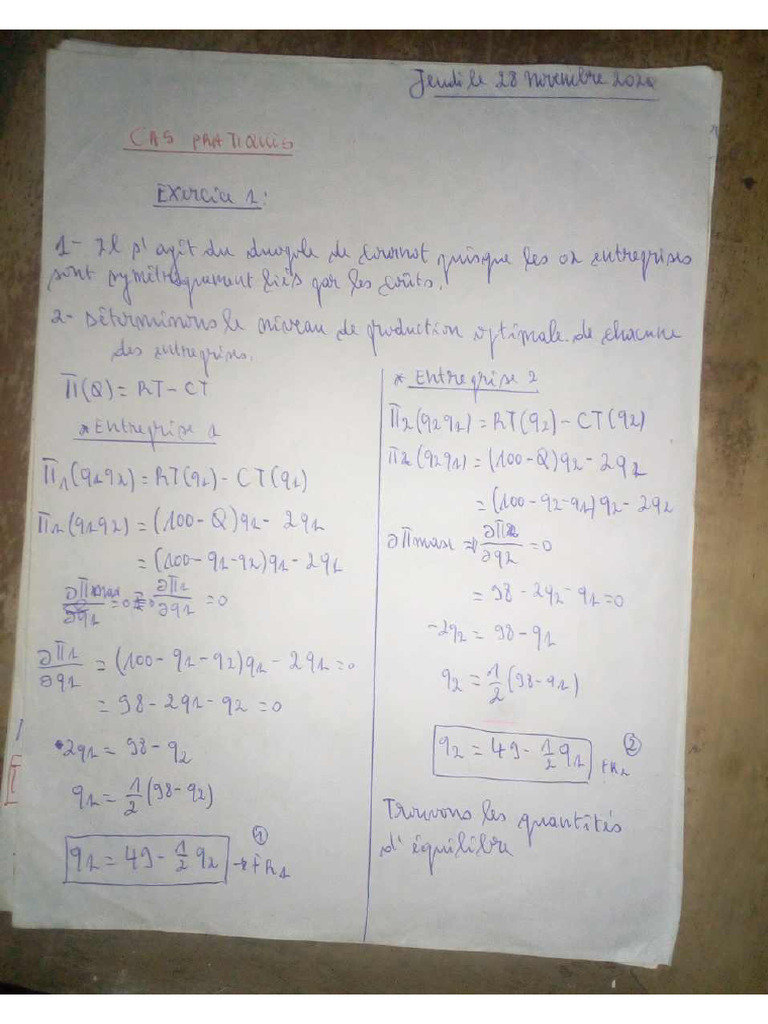 Jeudi le 28 novembre 2020
CAS PRATIQUES
Exercice 1:
1- Il s'agit du duopole de Cournot puisque les 02 entreprises
sont symétriquement liés par les coûts.
2- Déterminons le niveau de production optimale de chacune
des entreprises.
Π(Q) = RT - CT
* Entreprise 1
Π1(q1q2) = RT(q1) - CT(q1)
Π1(q1q2) = (100-Q)q1 - 2q1
= (100-q1-q2)q1 - 2q1
∂Π1/∂q1 = 0
∂Π1/∂q1 = (100-q1-q2)q1 - 2q1 = 0
= 98 - 2q1 - q2 = 0
2q1 = 98 - q2
q1 = 1/2 (98-q2)
q1 = 49 - 1/2 q2 → FR1 ①
* Entreprise 2
Π2(q2q1) = RT(q2) - CT(q2)
Π2(q2q1) = (100-Q)q2 - 2q2
= (100-q2-q1)q2 - 2q2
∂Πmax ⇒ ∂Π2/∂q2 = 0
= 98 - 2q2 - q1 = 0
-2q2 = 98 - q1
q2 = 1/2 (98-q1)
q2 = 49 - 1/2 q1 FR2 ②
Trouvons les quantités
d'équilibre